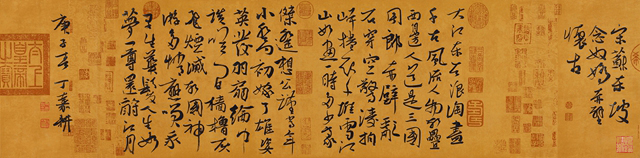 宋蘇東坡
念奴嬌赤壁
懷古
大江东去浪淘盡
千古風流人物故壘
西邊人道是三國
周郎赤壁亂
石穿空驚濤拍
岸捲起千堆雪江
山如畫一時多少豪
傑遥想公瑾當年
小喬初嫁了雄姿
英發羽扇綸巾
談笑間檣櫓灰
飛煙滅故國神
游多情應笑我
早生華髮人生如
夢一尊還酹江月
庚子 丁 耕